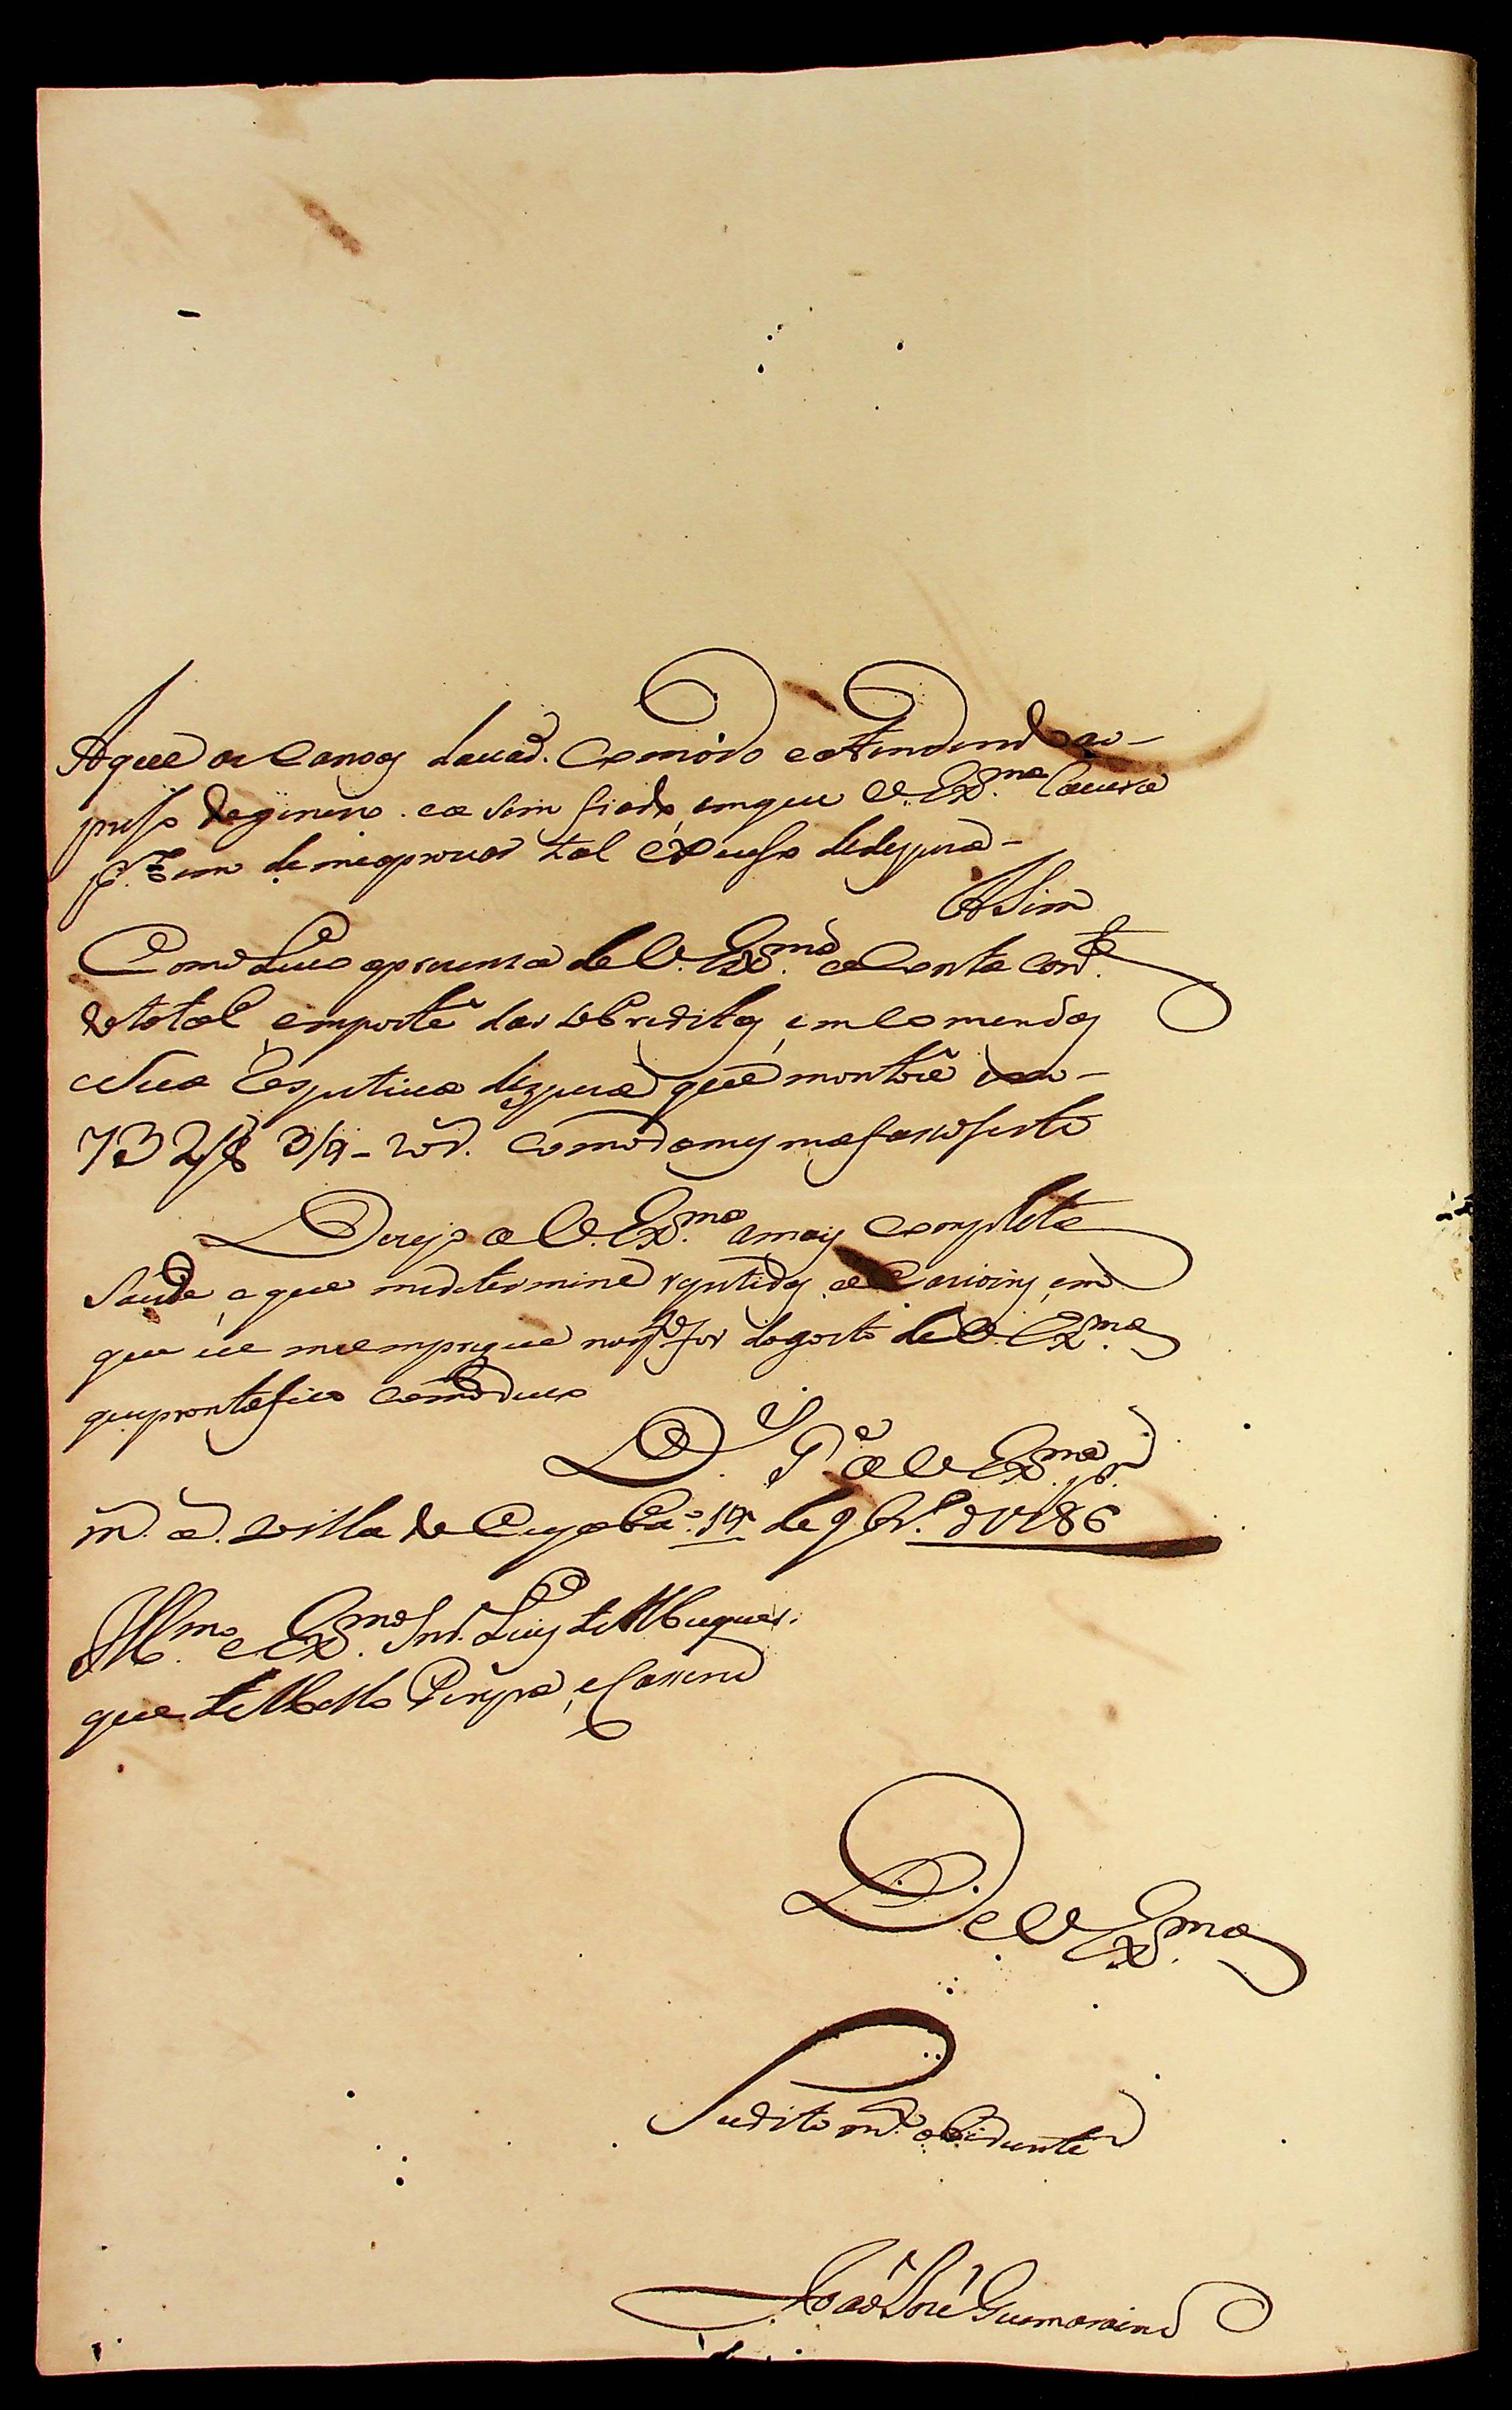 Aque as Canoas Levad. Comodo eatendend ao-
preso degenero. ea sim fiado, emque V. Ex.ma Louvra
hade meaprovar tal excuso dedespeza-
Asim
Como Levo aprezensa de V. Ex.ma aConta Cor.te
dototal, emporte das sobreditas, emComendas
eSua Respetiva dezpeza que montou em-
732/8 3/4- Como damesma faso serto
Dezejo a V. Ex.ma amais Completa
Saude, eque medetermine repetidas ocazioins, em
que eu meempregue nos q. for dogosto de V. Ex.ma
queprontofico Comodevo
D.s G.e a V Ex.ma p.r
m. a. Villa do Cuyaba. 14 de 9br.o d1786
Ill.mo e Ex.mo Snr. Luis de Albuquer.
que de Mello Pereyra, eCaseres
De V Ex.ma
Sudito m.to obidiente
João José Guimaraens